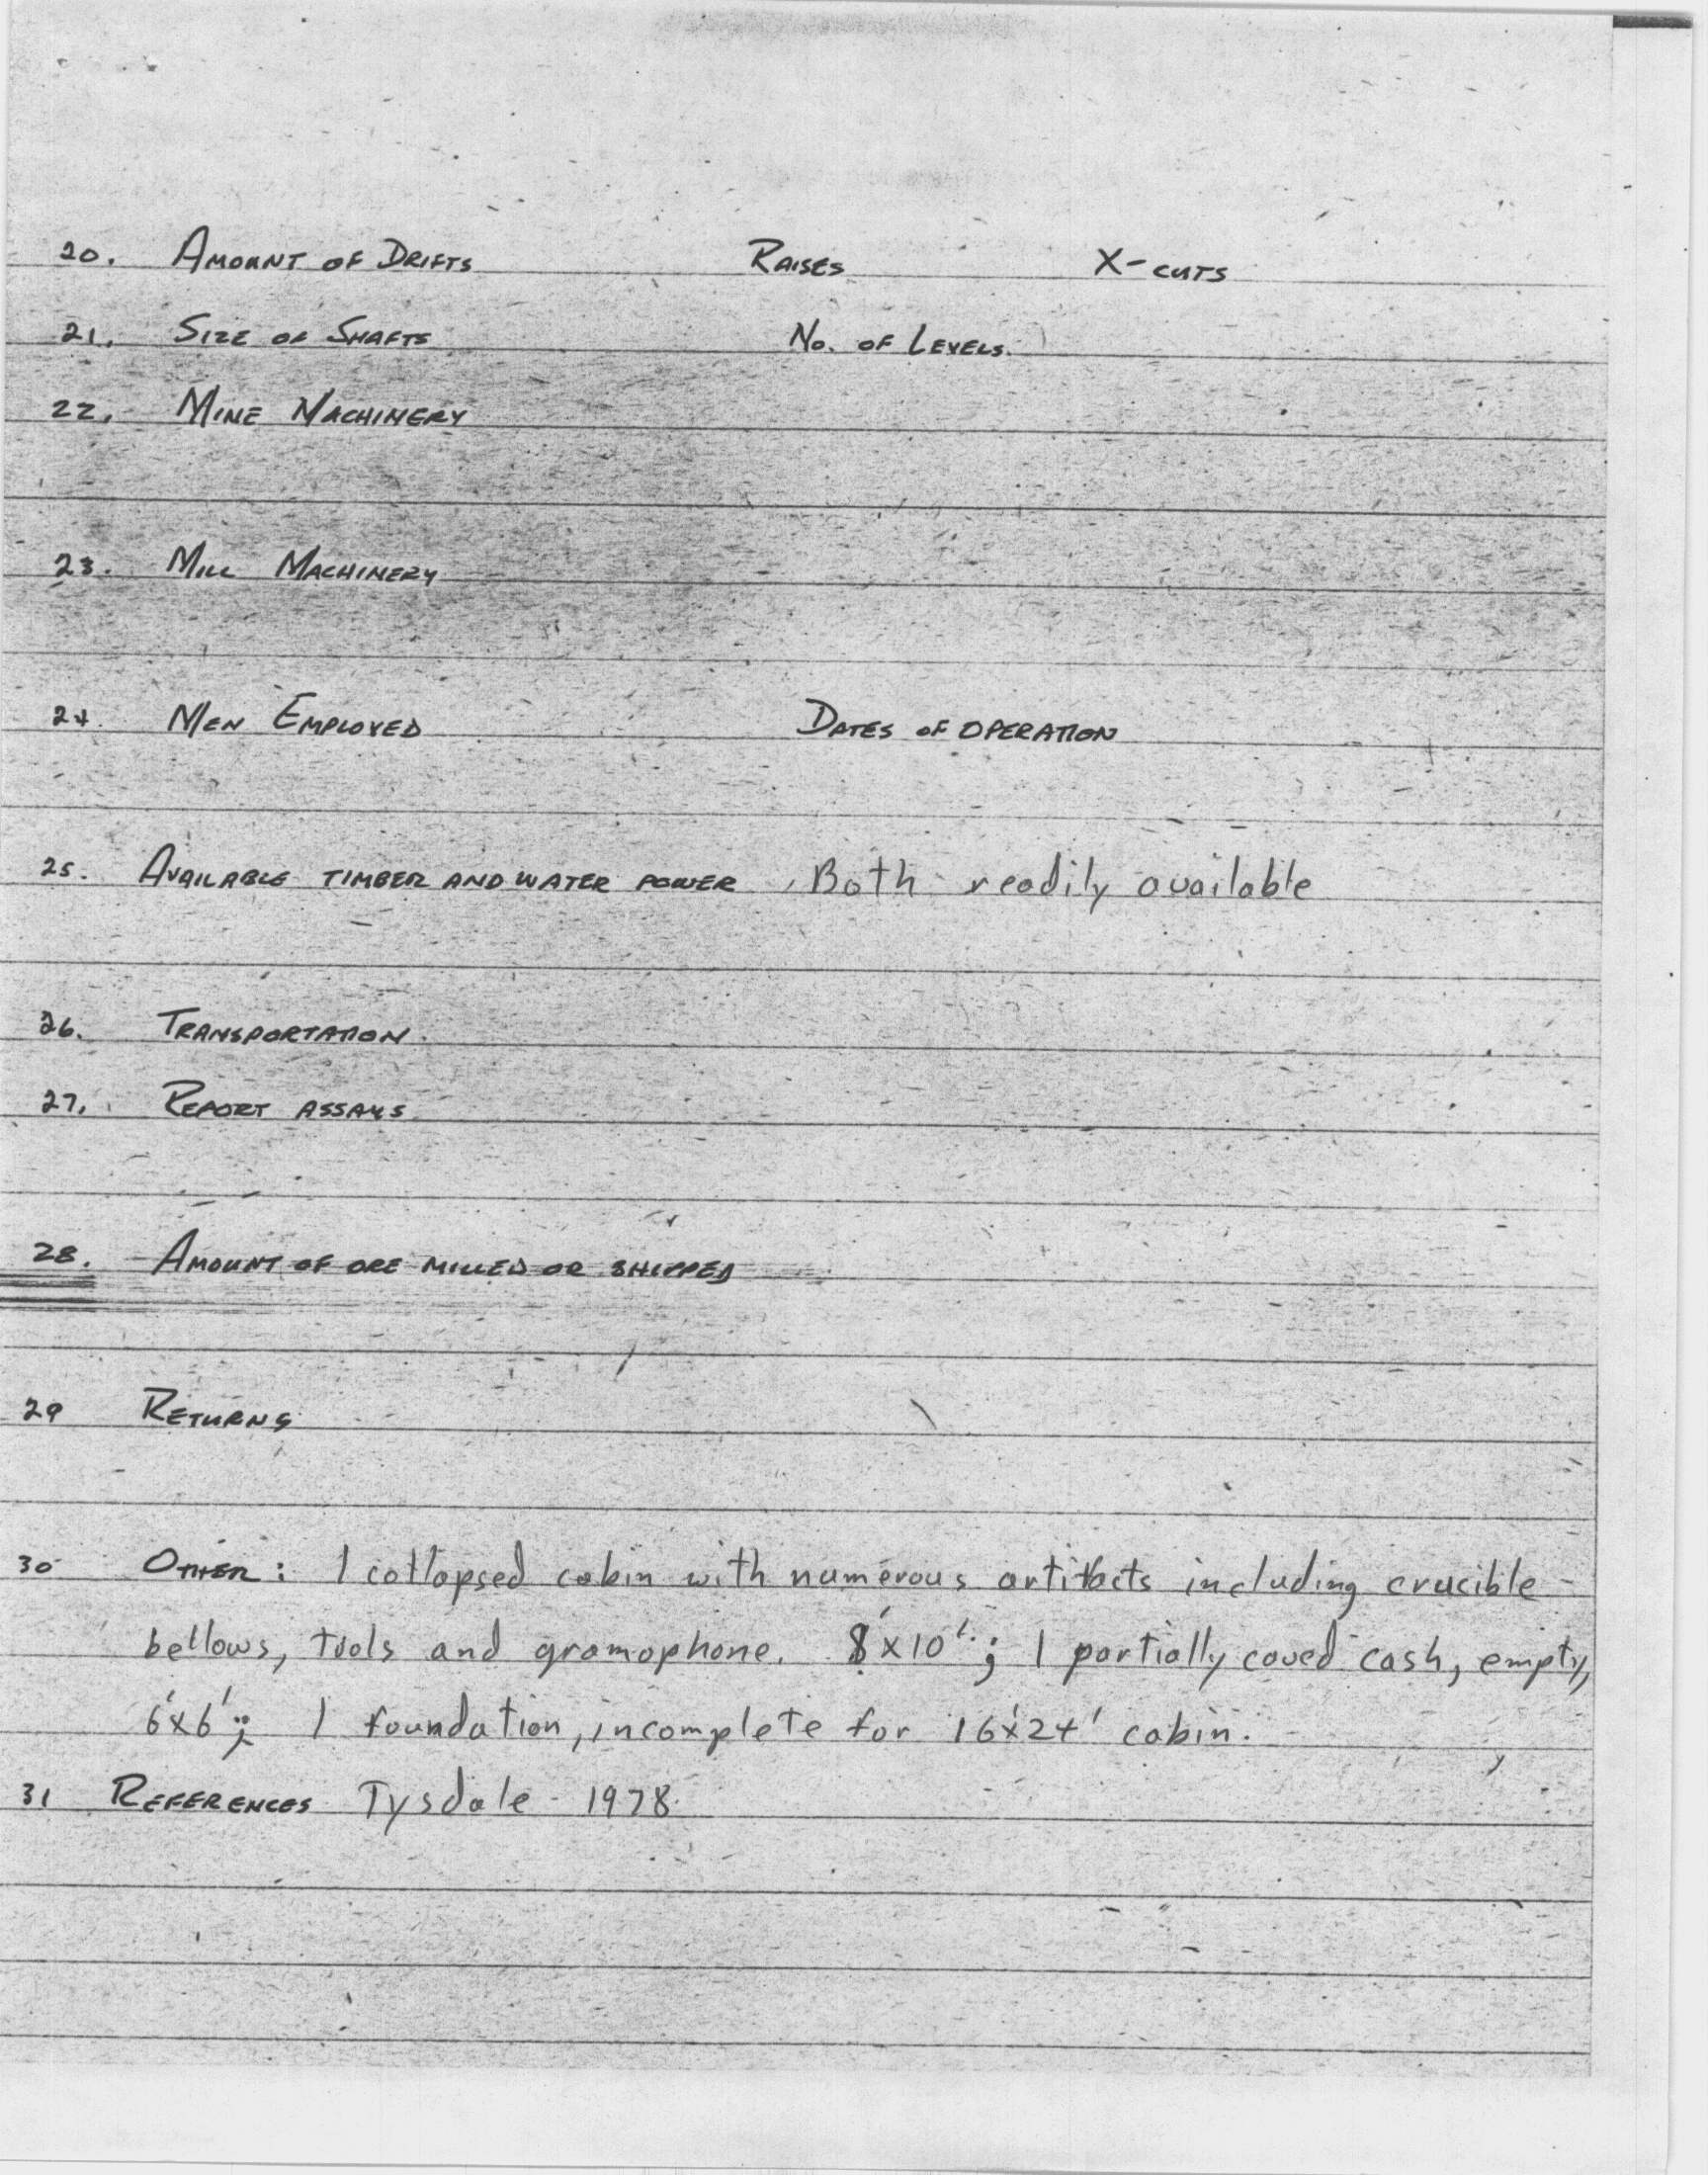 20. AMOUNT OF DRIFTS RAISES X-CUTS
21. SIZE OF SHAFTS NO. OF LEVELS.
22. MINE MACHINERY
23. MILL MACHINERY
24. MEN EMPLOYED DATES OF OPERATION
25. AVAILABLE TIMBER AND WATER POWER Both readily available
26. TRANSPORTATION.
27. REPORT ASSAYS
28. AMOUNT OF ORE MILLED OR SHIPPED
29 RETURNS
30 OTHER: 1 collapsed cabin with numerous artifacts including crucible
bellows, tools and gramophone. 8'x10'; 1 partially caved cash, empty,
6'x6'; 1 foundation, incomplete for 16'x24' cabin.
31 REFERENCES Tysdale - 1978